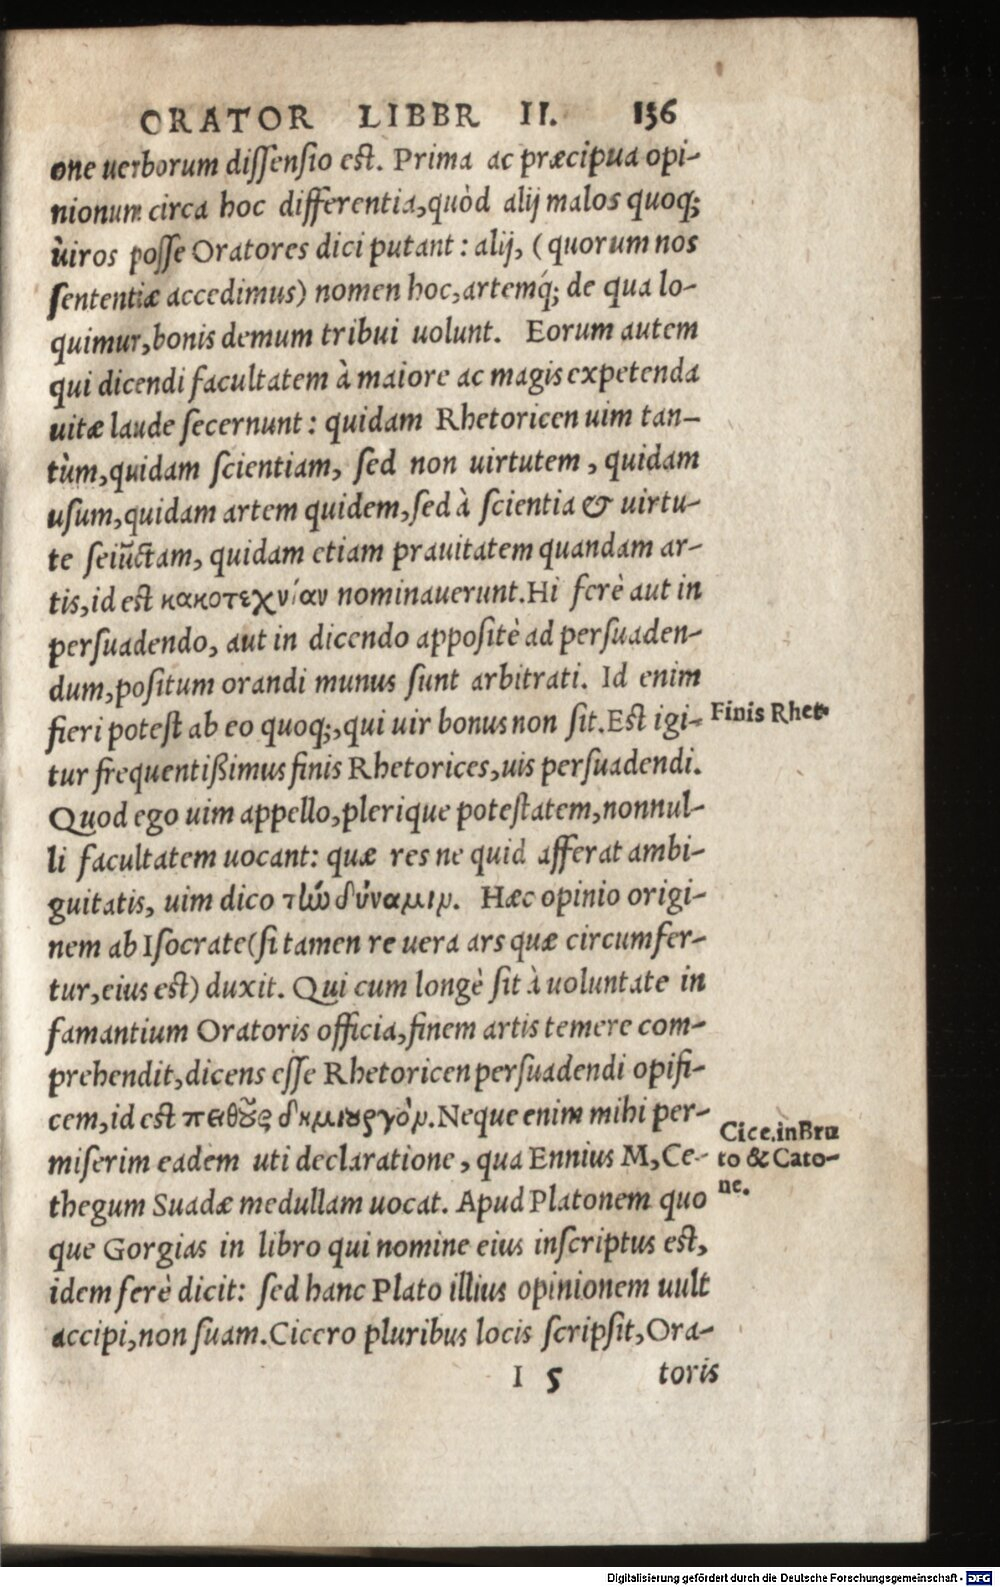 ORATOR LIBBR II. 136
one uerborum dissensio est. Prima ac præcipua opi-
nionum circa hoc differentia,quòd alij malos quoq;
ùiros posse Oratores dici putant : alij, ( quorum nos
sententiæ accedimus) nomen hoc,artemq́; de qua lo-
quimur,bonis demum tribui uolunt. Eorum autem
qui dicendi facultatem à maiore ac magis expetenda
uitæ laude secernunt : quidam Rhetoricen uim tan-
tùm,quidam scientiam, sed non uirtutem , quidam
usum,quidam artem quidem,sed à scientia & uirtu-
te seiūctam, quidam etiam prauitatem quandam ar-
tis,id est κακοτεχνίαν nominauerunt.Hi ferè aut in
persuadendo, aut in dicendo appositè ad persuaden-
dum,positum orandi munus sunt arbitrati. Id enim
fieri potest ab eo quoq;,qui uir bonus non sit.Est igi- Finis Rhet.
tur frequentißimus finis Rhetorices,uis persuadendi.
Quod ego uim appello,plerique potestatem,nonnul-
li facultatem uocant: quæ res ne quid afferat ambi-
guitatis, uim dico τὴν δύναμιν. Hæc opinio origi-
nem ab Isocrate(si tamen re uera ars quæ circumfer-
tur,eius est) duxit. Qui cum longè sit à uoluntate in
famantium Oratoris officia,finem artis temere com-
prehendit,dicens esse Rhetoricen persuadendi opifi-
cem,id est πειθοῦς δημιουργὸν.Neque enim mihi per-
miserim eadem uti declaratione , qua Ennius M,Ce-
thegum Suadæ medullam uocat. Apud Platonem quo
que Gorgias in libro qui nomine eius inscriptus est,
idem ferè dicit: sed hanc Plato illius opinionem uult
accipi,non suam.Cicero pluribus locis scripsit,Ora-
Cice.in Bru
to & Cato-
ne.
I 5 toris
Digitalisierung gefördert durch die Deutsche Forschungsgemeinschaft - DFG